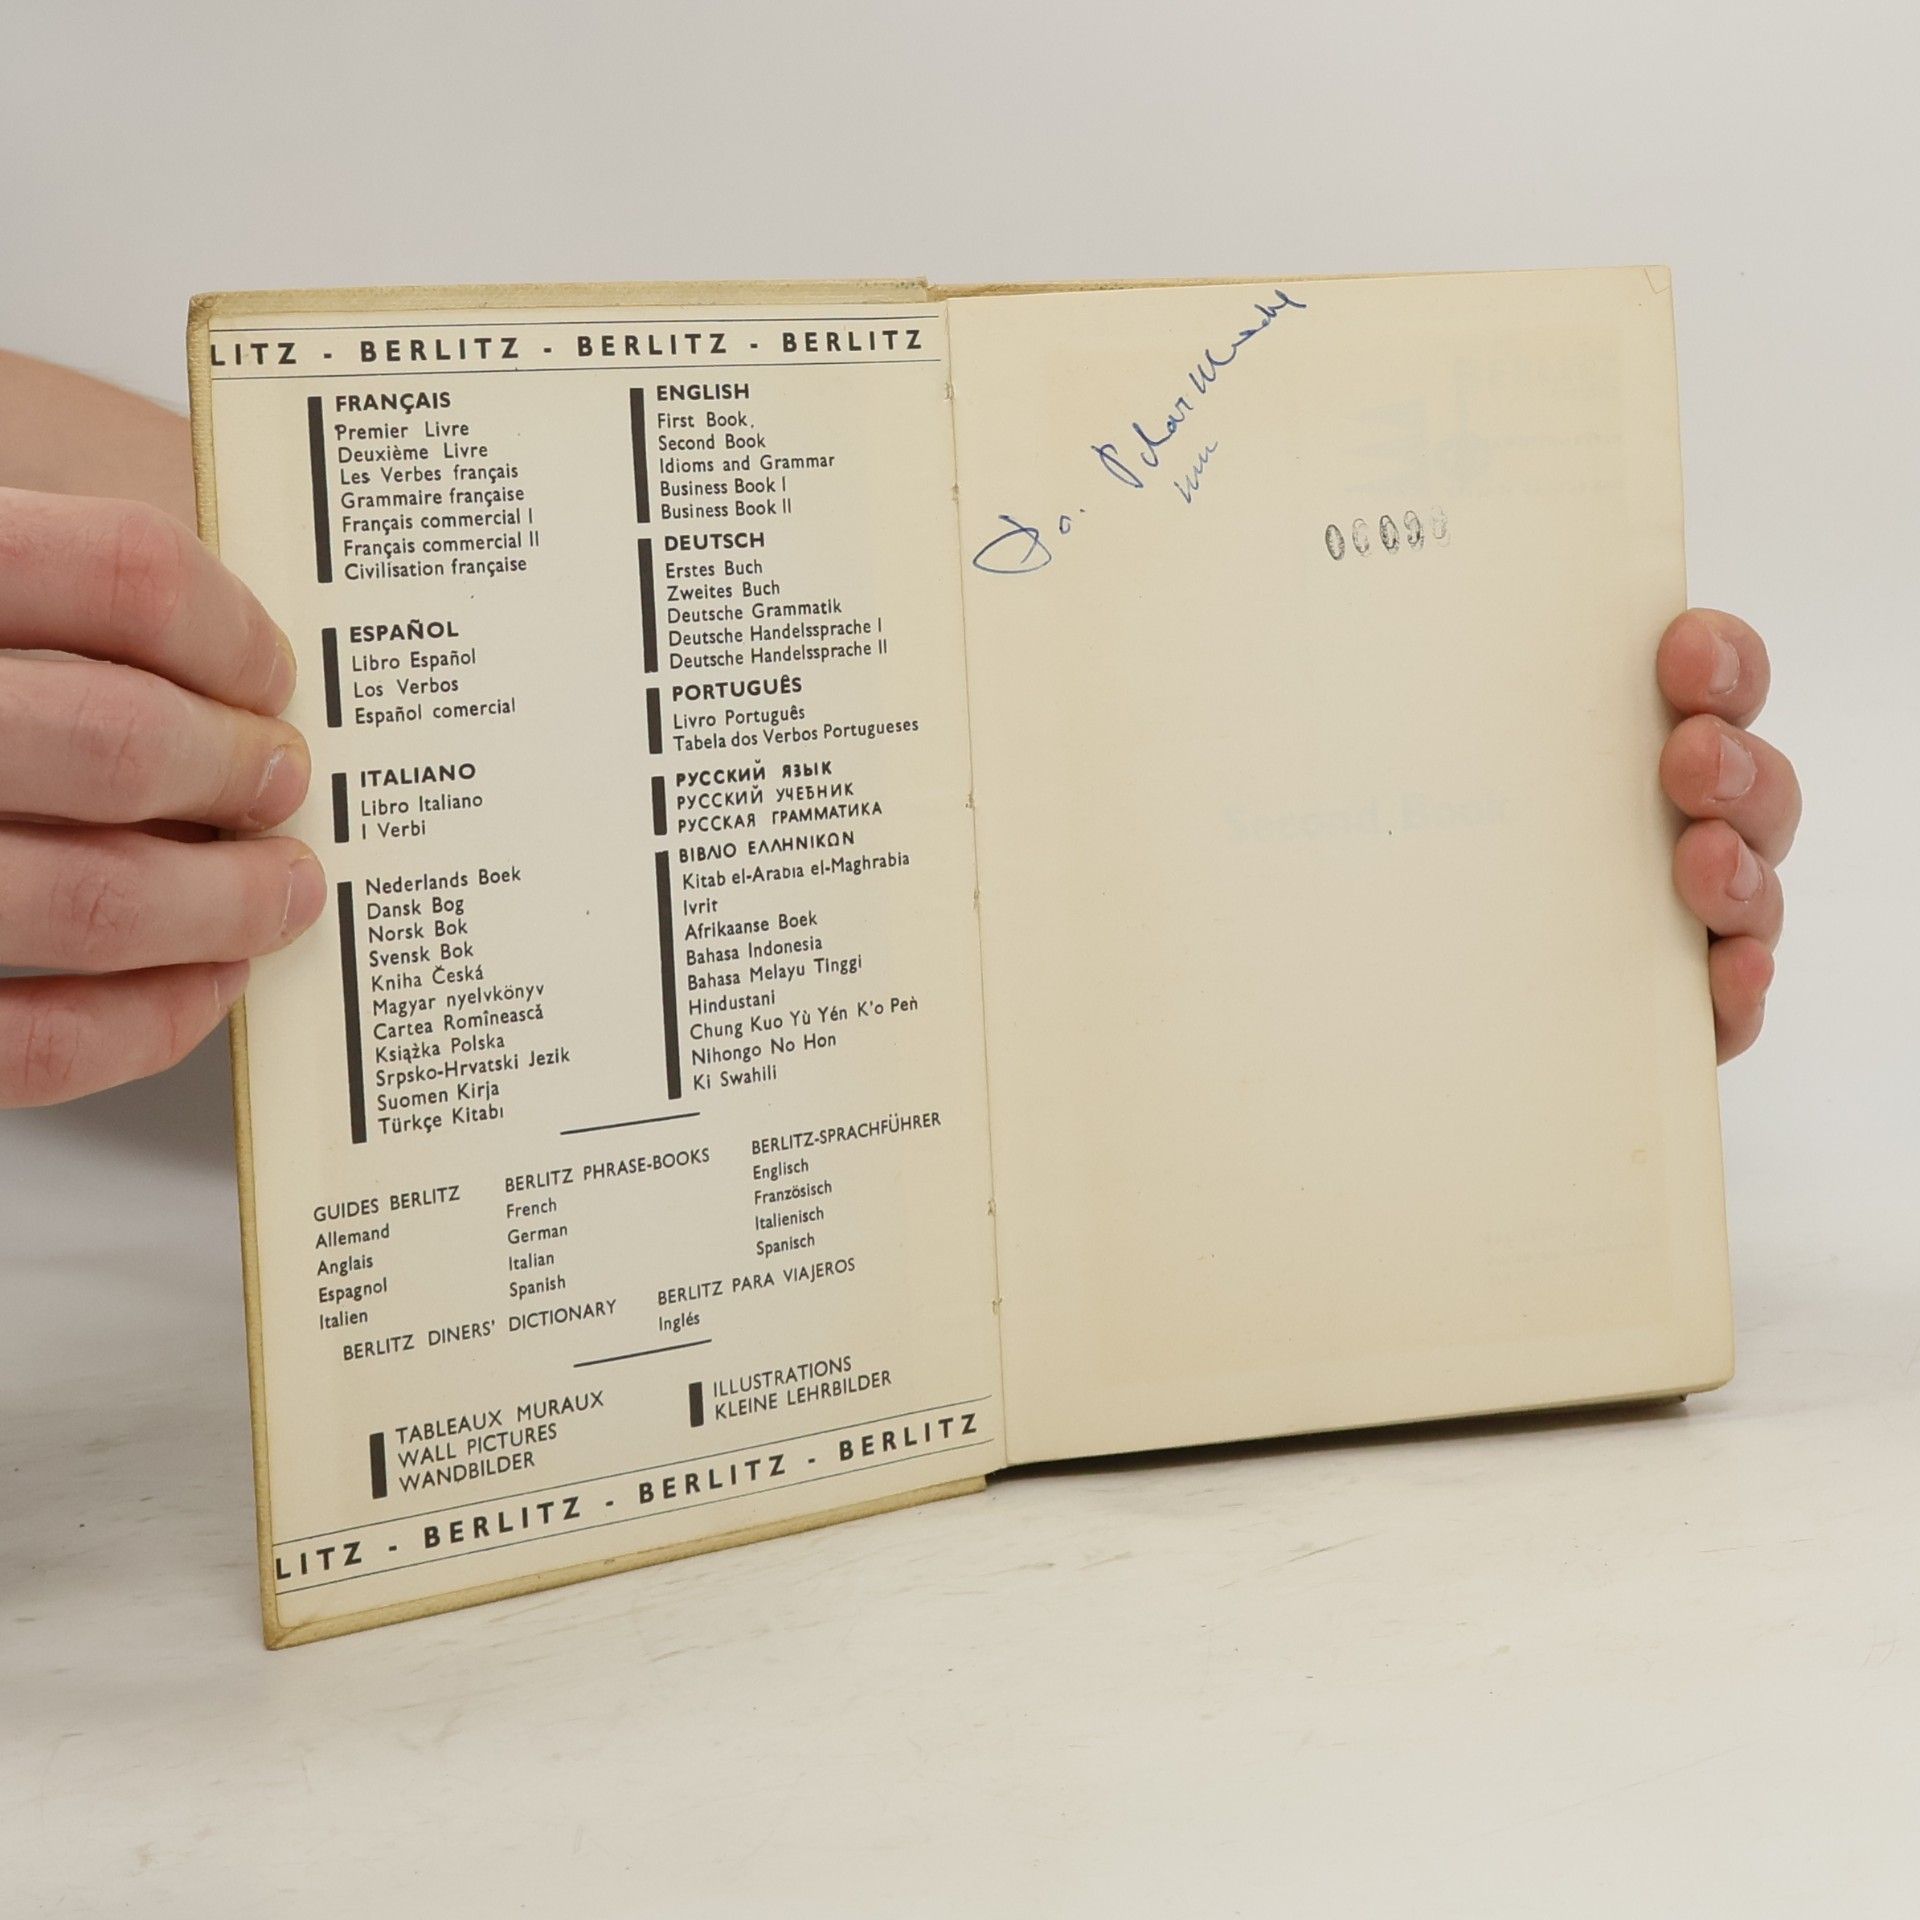 LITZ - BERLITZ - BERLITZ - BERLITZ
FRANÇAIS
Premier Livre
Deuxième Livre
Les Verbes français
Grammaire française
Français commercial I
Français commercial II
Civilisation française
ESPAÑOL
Libro Español
Los Verbos
Español comercial
ITALIANO
Libro Italiano
I Verbi
Nederlands Boek
Dansk Bog
Norsk Bok
Svensk Bok
Kniha Česká
Magyar nyelvkönyv
Cartea Romînească
Książka Polska
Srpsko-Hrvatski Jezik
Suomen Kirja
Türkçe Kitabı
ENGLISH
First Book,
Second Book
Idioms and Grammar
Business Book I
Business Book II
DEUTSCH
Erstes Buch
Zweites Buch
Deutsche Grammatik
Deutsche Handelssprache I
Deutsche Handelssprache II
PORTUGUÊS
Livro Português
Tabela dos Verbos Portugueses
РУССКИЙ ЯЗЫК
РУССКИЙ УЧЕБНИК
РУССКАЯ ГРАММАТИКА
ΒΙΒΛΙΟ ΕΛΛΗΝΙΚΩΝ
Kitab el-Arabıa el-Maghrabia
Ivrit
Afrikaanse Boek
Bahasa Indonesia
Bahasa Melayu Tinggi
Hindustani
Chung Kuo Yù Yén K'o Peǹ
Nihongo No Hon
Ki Swahili
GUIDES BERLITZ
Allemand
Anglais
Espagnol
Italien
BERLITZ PHRASE-BOOKS
French
German
Italian
Spanish
BERLITZ-SPRACHFÜHRER
Englisch
Französisch
Italienisch
Spanisch
BERLITZ DINERS' DICTIONARY
BERLITZ PARA VIAJEROS
Inglés
TABLEAUX MURAUX
WALL PICTURES
WANDBILDER
ILLUSTRATIONS
KLEINE LEHRBILDER
LITZ - BERLITZ - BERLITZ - BERLITZ
00000